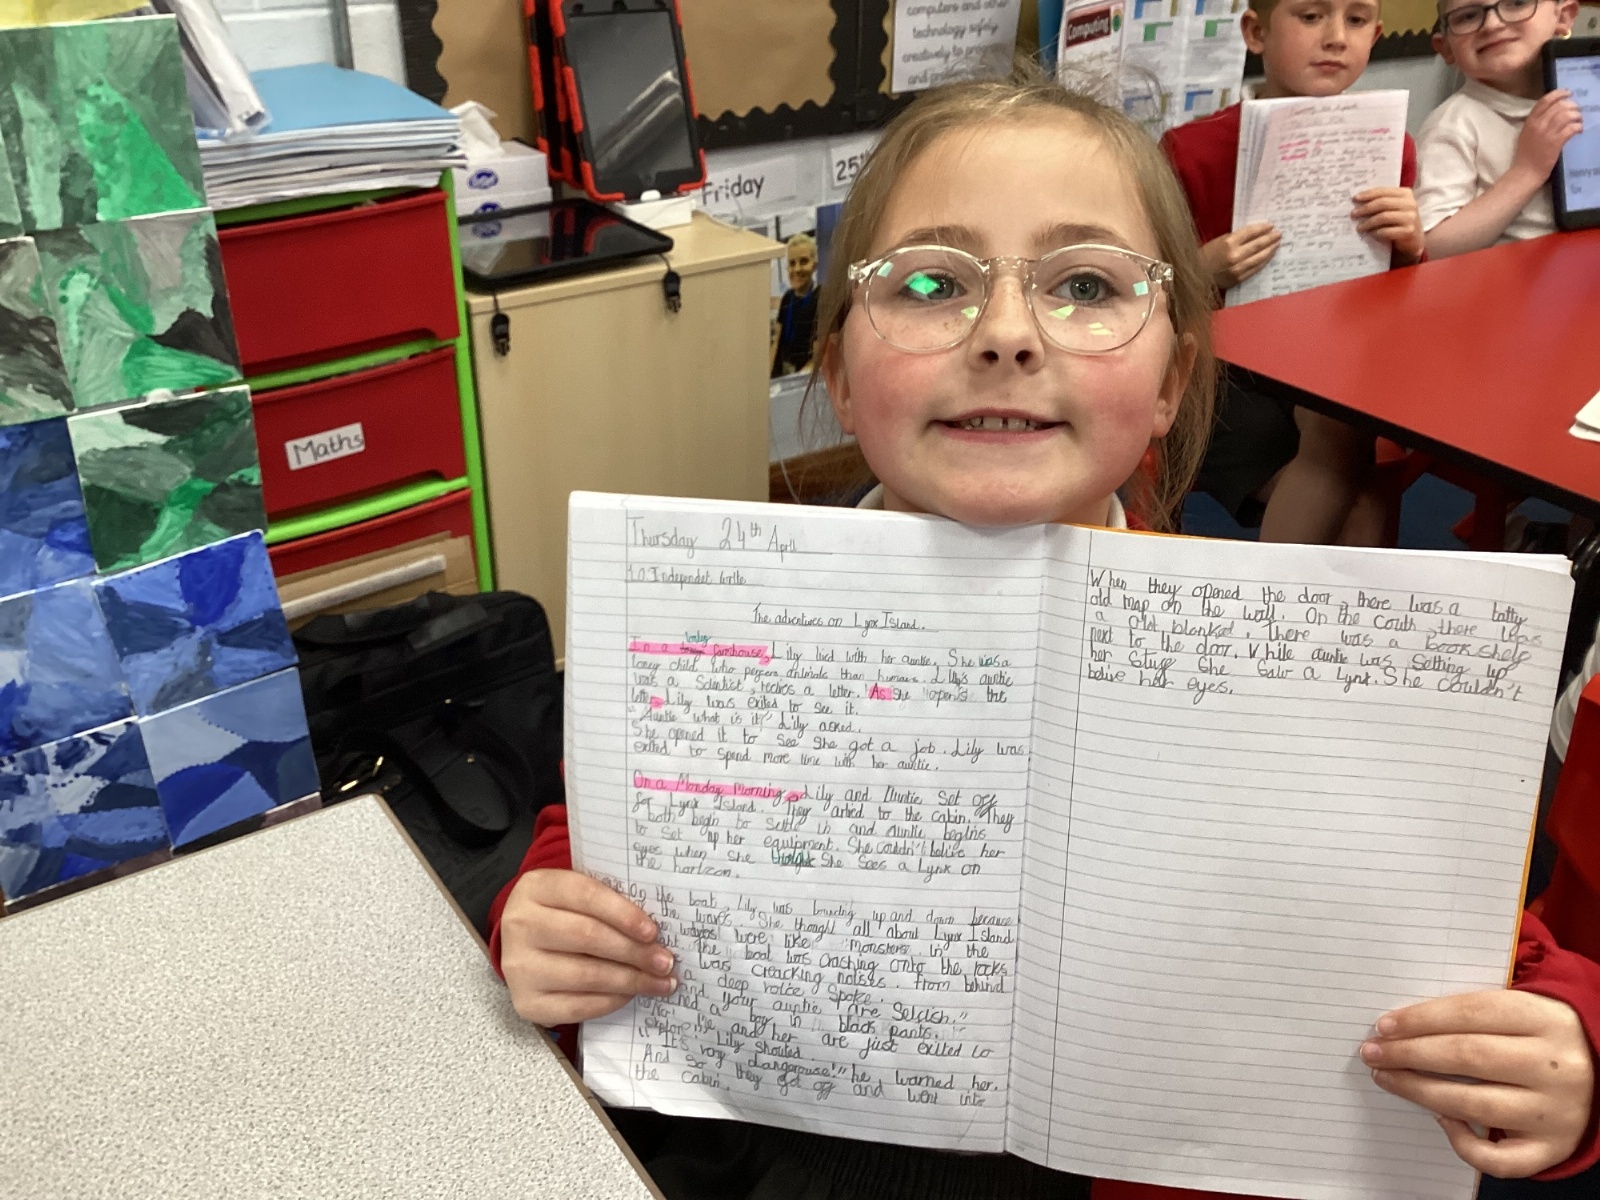 computers and other
technology safely
creatively to
and
Computing
Friday
25th
Maths
Thursday 24th April
L.O. Independet write
The adventures on Lynx Island.
In a lonley farmhouse, Lily lied with her auntie. She was a
loney child who pefers animals than humans. Lily's auntie
was a Scientist, recives a letter. As she open's the
letter, Lily was exited to see it.
"Auntie what is it?" Lily asked.
She opened it to see she got a job. Lily was
exited to spend more time with her auntie.
On a Monday Morning, Lily and Auntie set off
for Lynx Island. They arived to the cabin. They
both begin to settle in and auntie begins
to set up her equipment. She couldn't belive her
eyes when she thought she sees a Lynx on
the horizon.
On the boat, Lily was bouncing up and down because
the waves. She thought all about Lynx Island
were like monsters in the
The boat was crashing onto the rocks
was creacking noises. From behind
a deep voice spoke.
and your auntie are selfish."
a boy in black pants.
"No! Me and her are just exited to
explore!" Lily shouted.
"It's very dangerouse!" he warned her.
And so they got off and went into
the cabin.
When they opened the door, there was a tatty
old map on the wall. On the couth there was
a old blanked. There was a bookshelf
next to the door. While auntie was setting up
her stuff she saw a Lynx. She couldn't
belive her eyes.